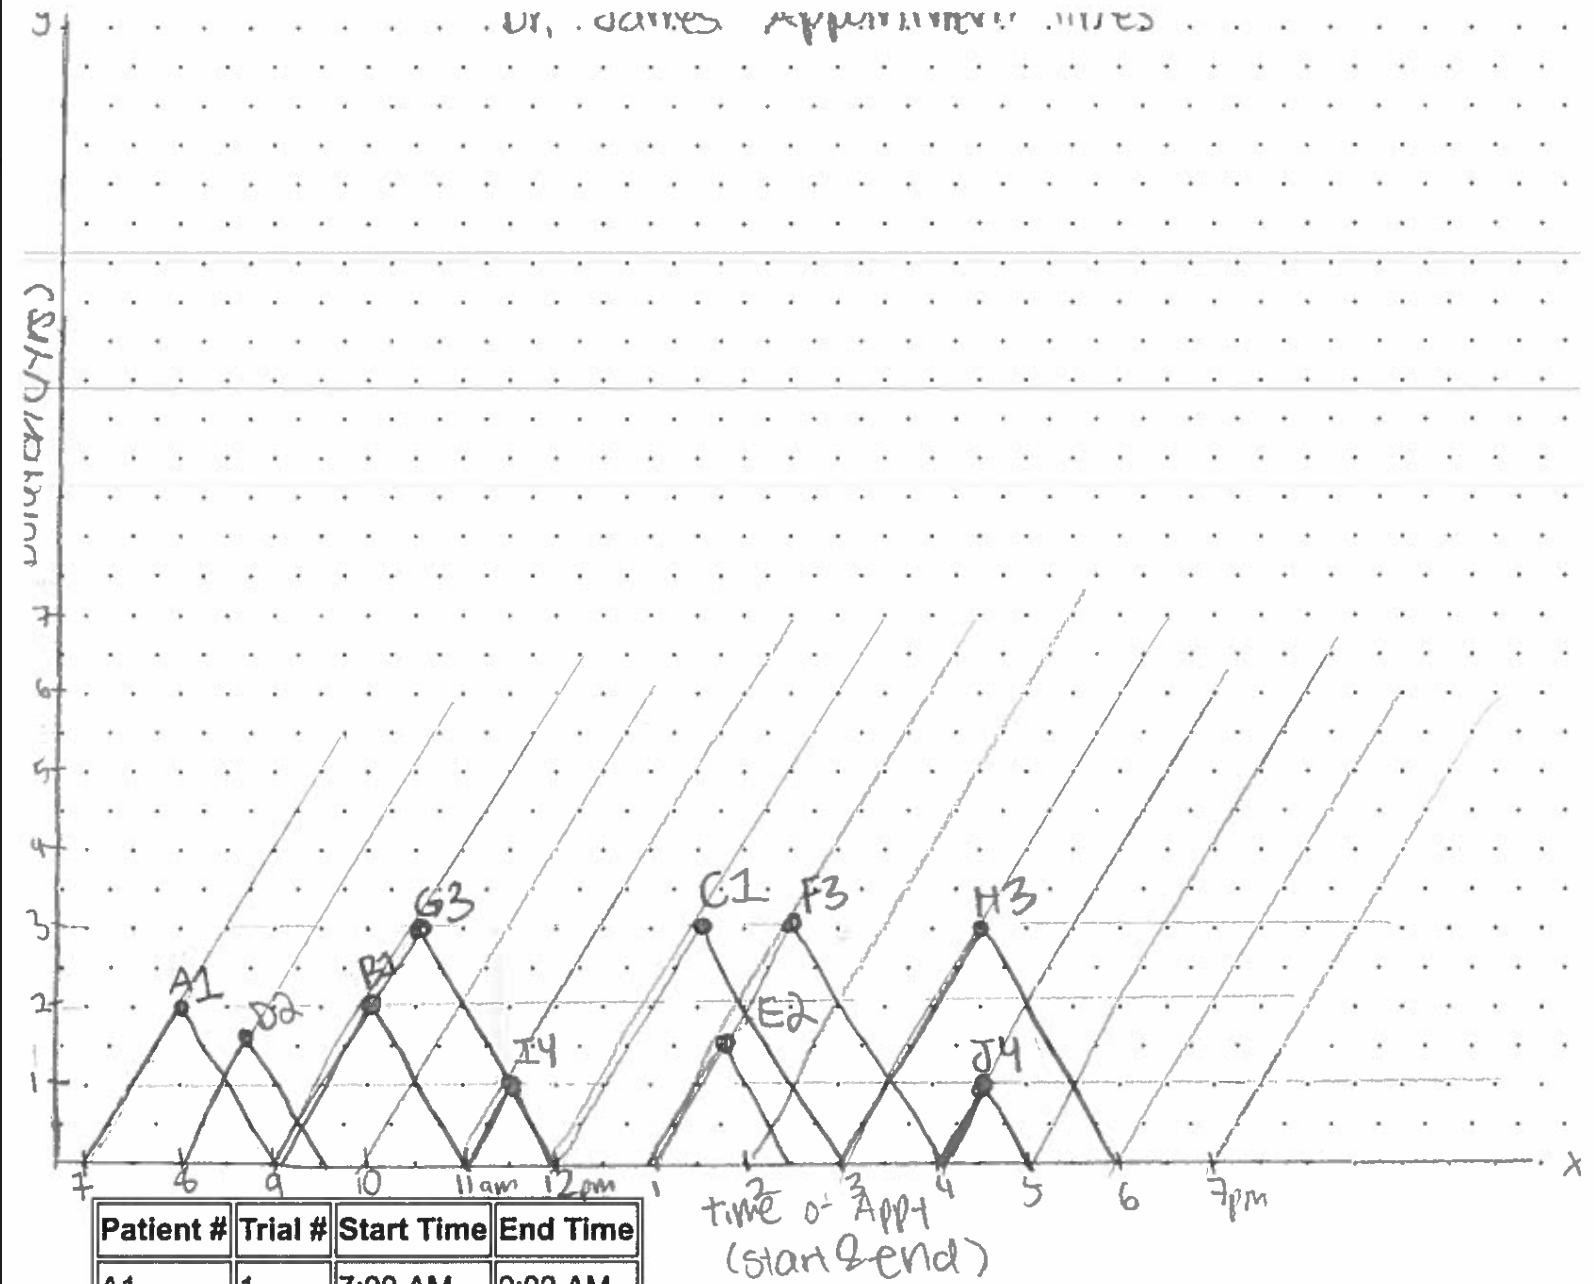 y
Dr. James Appointment Times
Duration (HRS)
7
6
5
4
3
2
1
G3
C1
F3
H3
A1
B1
D2
E2
I4
J4
7
8
9
10
11am
12pm
1
2
3
4
5
6
7pm
x
time of Appt
(start & end)
Patient #
Trial #
Start Time
End Time
A1
1
7:00 AM
9:00 AM